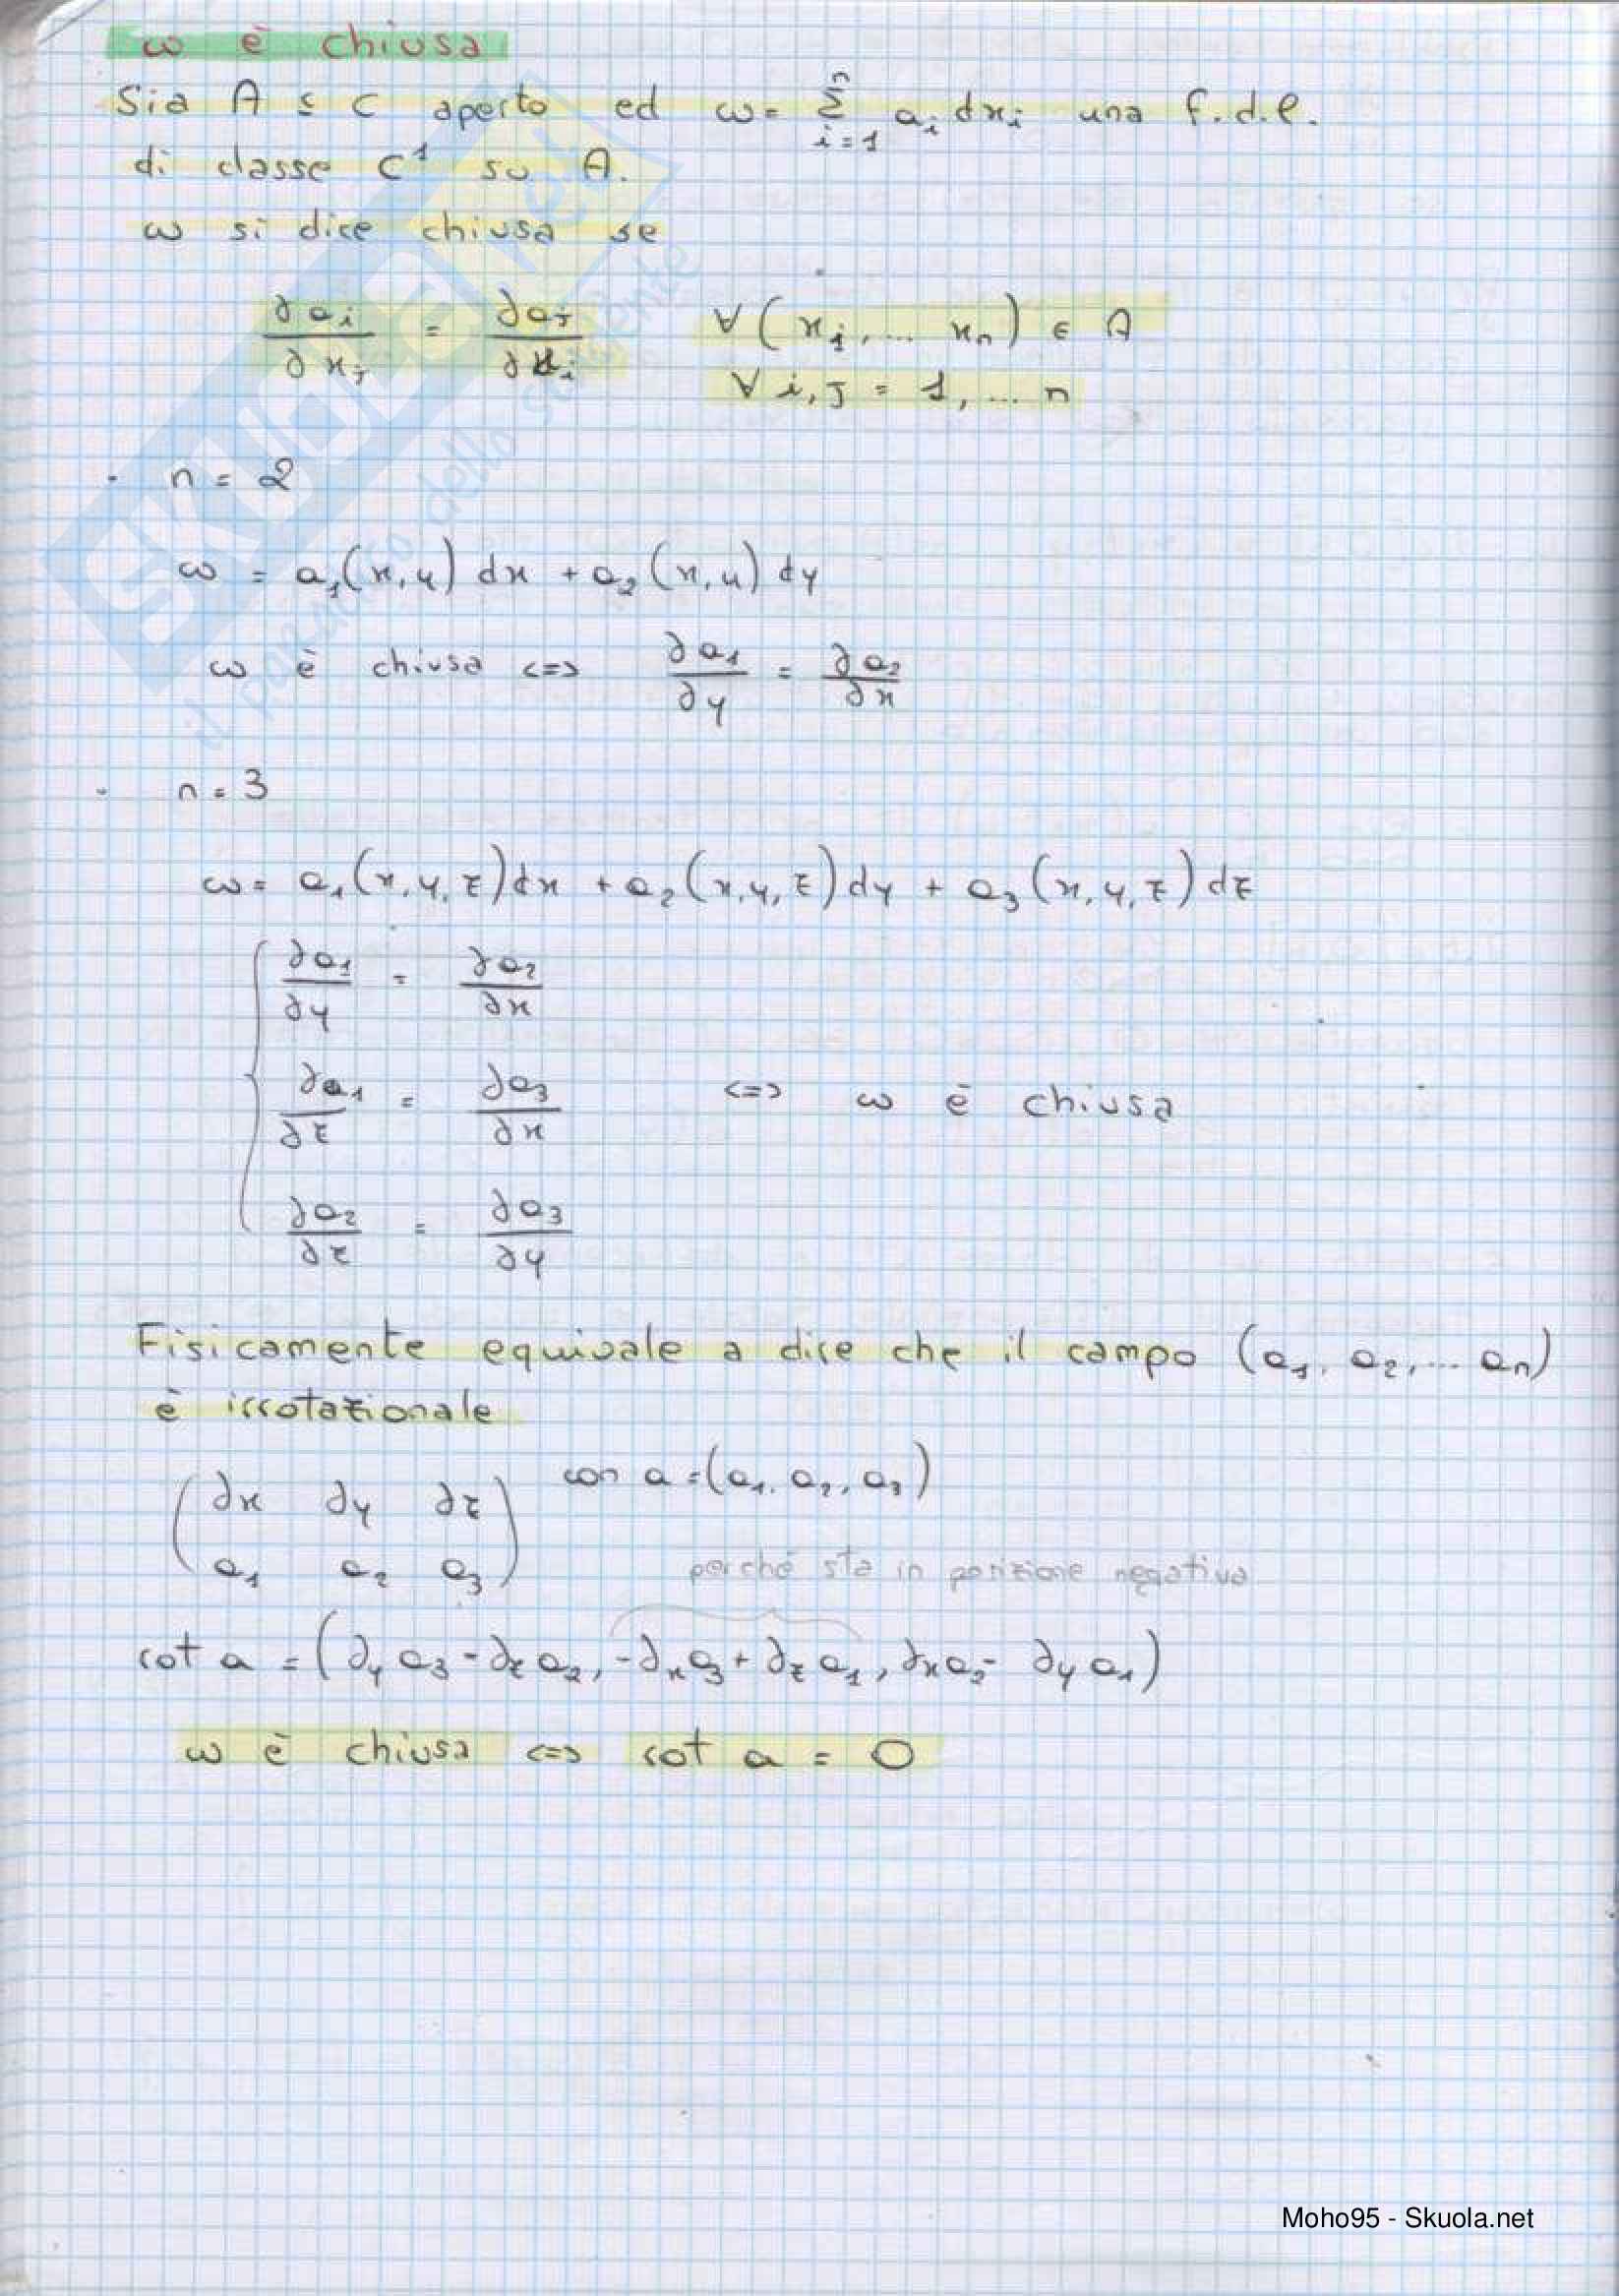 ω è chiusa
Sia A ⊆ C aperto ed ω = ∑_{i=1}^{n} a_i dx_i una f.d.l.
di classe C¹ su A.
ω si dice chiusa se
∂a_i/∂x_j = ∂a_j/∂x_i ∀(x_1, ... x_n) ∈ A
∀ i, j = 1, ... n
· n = 2
ω = a_1(x,y) dx + a_2(x,y) dy
ω è chiusa <=> ∂a_1/∂y = ∂a_2/∂x
- n = 3
ω = a_1(x,y,z)dx + a_2(x,y,z)dy + a_3(x,y,z)dz
∂a_1/∂y = ∂a_2/∂x
∂a_1/∂z = ∂a_3/∂x <=> ω è chiusa
∂a_2/∂z = ∂a_3/∂y
Fisicamente equivale a dire che il campo (a_1, a_2, ... a_n)
è irrotazionale
(∂x ∂y ∂z) con a = (a_1, a_2, a_3)
(a_1 a_2 a_3)
perché sta in posizione negativa
rot a = (∂_y a_3 - ∂_z a_2, -∂_x a_3 + ∂_z a_1, ∂_x a_2 - ∂_y a_1)
ω è chiusa <=> rot a = 0
SKUOLA.net
il paradiso dello studente
Moho95 - Skuola.net